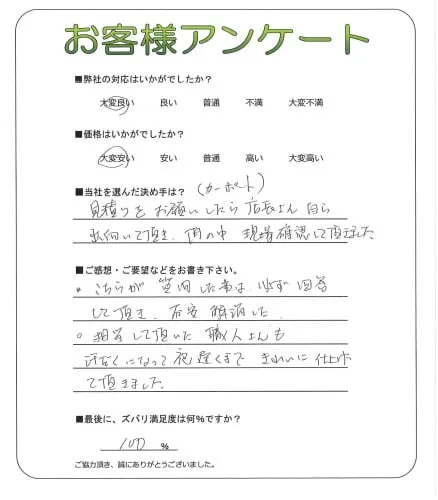 お客様アンケート
■弊社の対応はいかがでしたか？
大変良い 良い 普通 不満 大変不満
■価格はいかがでしたか？
大変安い 安い 普通 高い 大変高い
■当社を選んだ決め手は？ (カーポート)
見積りをお願いしたら店長さん自ら
出向いて頂き、雨の中 現場確認して頂きました
■ご感想・ご要望などをお書き下さい。
• こちらが質問した事は 必ず 回答
して頂き、不安 解消した。
○ 担当して頂いた 職人さんも
汗だくになって 夜遅くまで きれいに 仕上げ
て頂きました。
■最後に、ズバリ満足度は何％ですか？
100 %
ご協力頂き、誠にありがとうございました。